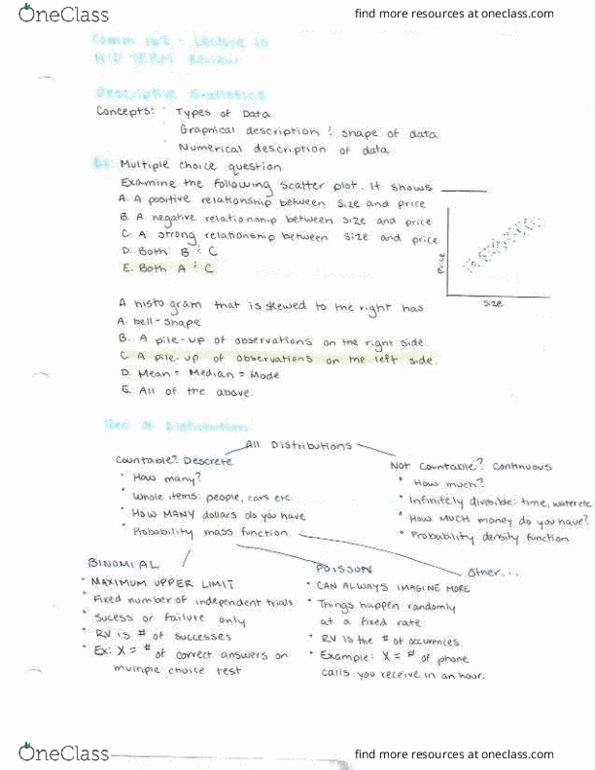 OneClass
find more resources at oneclass.com
Comm 162 - Lecture 10
MID TERM Review
Descriptive Statistics
Concepts: · Types of Data
· Graphical description & shape of data
· Numerical description of data
Ex: Multiple choice question
Examine the following scatter plot. It shows ______
A. A positive relationship between size and price
B. A negative relationship between size and price
C. A strong relationship between size and price
D. Both B & C
E. Both A & C
Price
Size
A histogram that is skewed to the right has
A. bell-shape
B. A pile-up of observations on the right side.
C. A pile-up of observations on the left side.
D. Mean = Median = Mode
E. All of the above.
of Distribution
All Distributions
Countable? Descrete
· How many?
· Whole items: people, cars etc.
· HOW MANY dollars do you have
· Probability mass function.
Not Countable? Continuous
· How much?
· Infinitely divisible: time, water etc.
· How MUCH money do you have?
· Probability density function
BINOMIAL
· MAXIMUM UPPER LIMIT
· Fixed number of independent trials
· Sucess or failure only
· RV is # of successes
· Ex: X = # of correct answers on
multiple choice test
POISSON
· CAN ALWAYS IMAGINE MORE
· Things happen randomly
at a fixed rate
· RV is the # of occurences.
· Example: X = # of phone
calls you receive in an hour.
Other...
OneClass
find more resources at oneclass.com